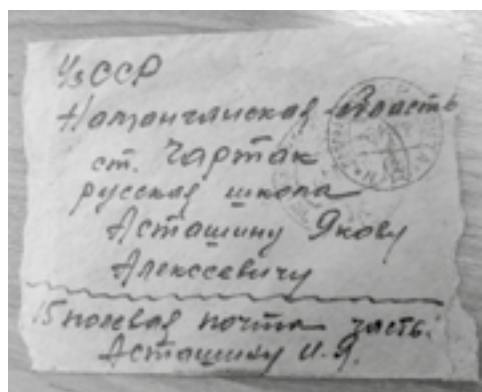 УзССР
Наманганская область
ст. Чартак
русская школа
Асташину Якову
Алексеевичу
15 полевая почта часть:
Асташину И.Я.